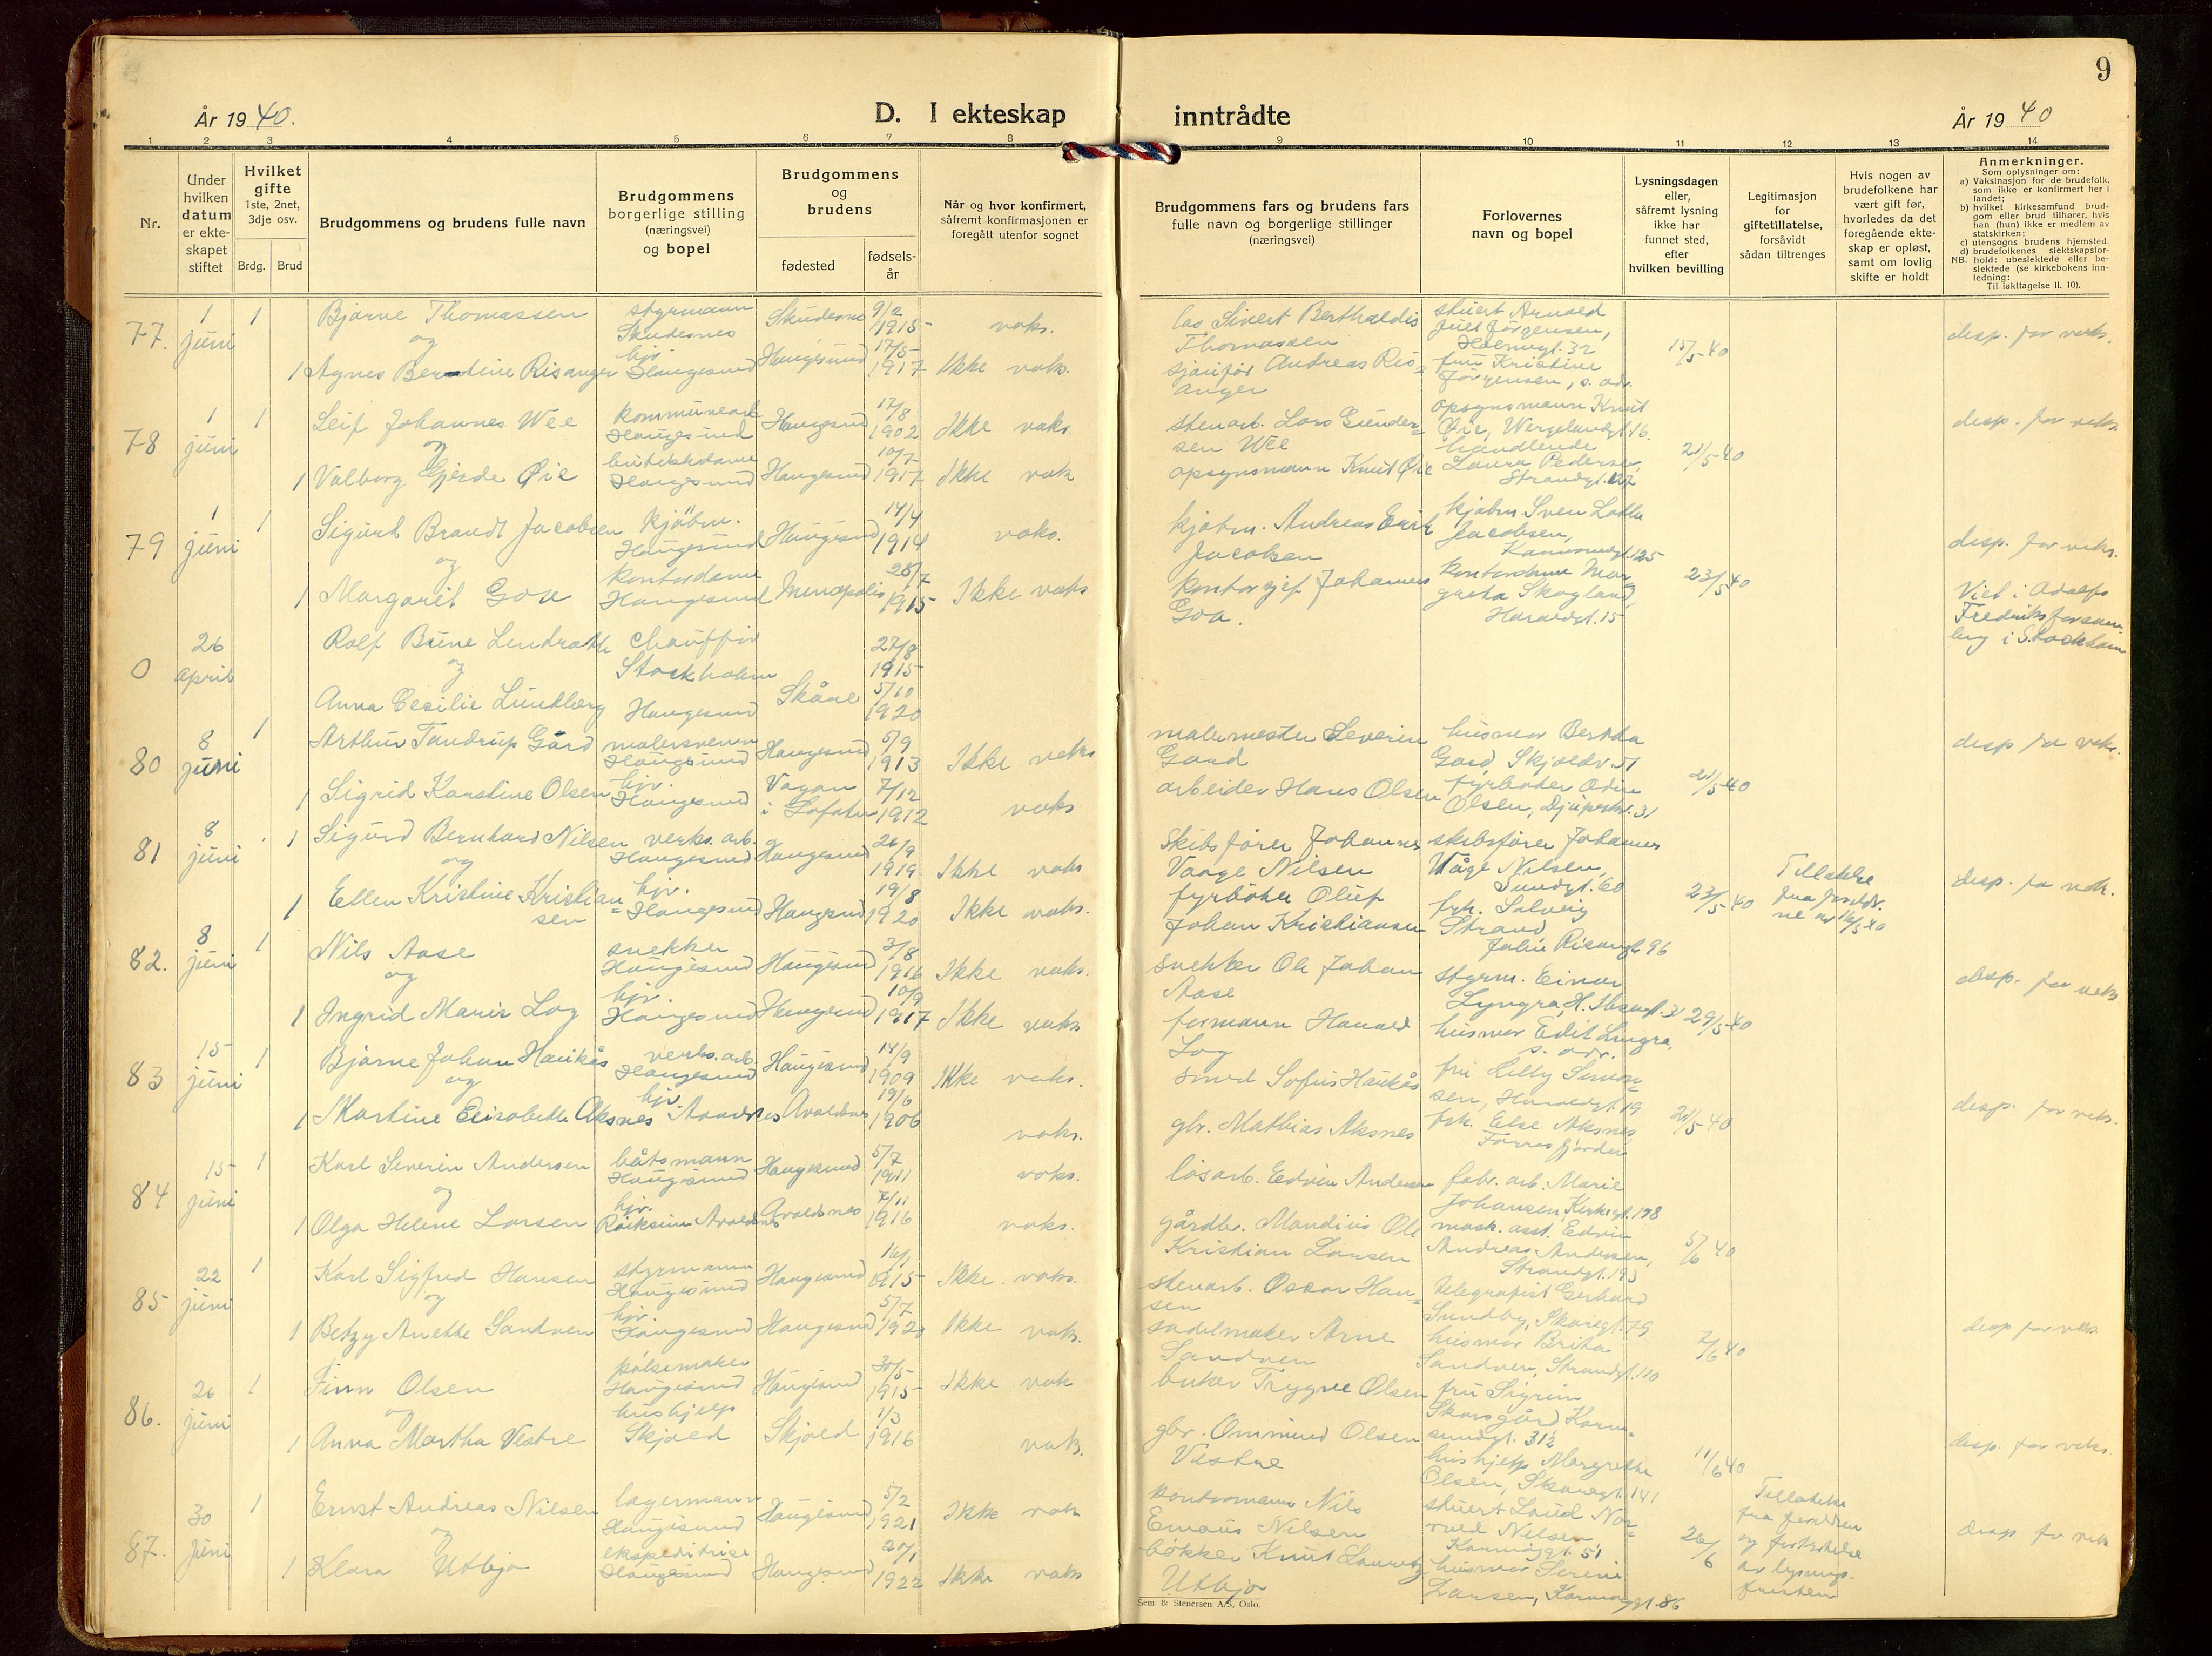 9
År 1940.
D. I ekteskap inntrådte
År 1940
1 2 3 4 5 6 7 8 9 10 11 12 13 14
Nr.
Under hvilken datum er ekteskapet stiftet
Hvilket gifte 1ste, 2net, 3dje osv.
Brdg. Brud
Brudgommens og brudens fulle navn
Brudgommens borgerlige stilling (næringsvei) og bopel
Brudgommens og brudens
fødested
fødsels-år
Når og hvor konfirmert, såfremt konfirmasjonen er foregått utenfor sognet
Brudgommens fars og brudens fars fulle navn og borgerlige stillinger (næringsvei)
Forlovernes navn og bopel
Lysningsdagen eller, såfremt lysning ikke har funnet sted, efter hvilken bevilling
Legitimasjon for giftetillatelse, forsåvidt sådan tiltrenges
Hvis nogen av brudefolkene har vært gift før, hvorledes da det foregående ekteskap er opløst, samt om lovlig skifte er holdt
Anmerkninger.
Som oplysning om:
a) Vaksinasjon for de brudefolk, som ikke er konfirmert her i landet;
b) hvilket kirkesamfund brudgom eller brud tilhører, hvis han (hun) ikke er medlem av statskirken;
c) utensogns brudens hjemsted.
d) brudefolkenes slektskapsforhold: ubeslektede eller beslektede (se kirkebokens innledning:
NB.
Til iakttagelse II. 10).
77. 1 juni 1 Bjarne Thomassen styrmann Skudesnes 9/2 1915 vaks.
og
1 Agnes Berntine Risanger hjv. Haugesund Haugesund 17/5 1917 Ikke vaks.
Sivert Berthaldis Thomassen
stuert Arnold Juell Jörgensen, Holmegt. 32
15/5-40 desp. for vaks.
sjåfør Andreas Risanger
fru Kristine Jørgensen, s. adr.
78 1 juni 1 Leif Johannes Wee kommunearb. Haugesund Haugesund 17/8 1902 Ikke vaks.
og
1 Valborg Gjerde Øie butikkdame Haugesund Haugesund 10/7 1917 Ikke vaks
stenarb. Lars Gundersen Wee
opsynsmann Knut Øie, Wergelandsgt. 16.
opsynsmann Knut Øie
handlende Laura Pedersen, Strandgt. 127
21/5-40 desp. for vaks.
79 1 juni 1 Sigurt Brandt Jacobsen kjöbm. Haugesund Haugesund 14/4 1914 vaks.
og
1 Margarit Goa kontordame Haugesund 28/7 1915 Ikke vaks
kjøbm. Andreas Jacobsen
kjøbm Sven Jacobsen, Karmsundgt. 125
kontorsjef Johannes Goa.
kontordame Margreta Skogland, Haraldgt. 15
23/5 40 desp. for vaks.
0 26 april Rolf Bune Lendrath chauffør Stockholm 27/8 1915
og
Anna Cecilie Lundberg Haugesund Skåne 5/10 1920
Viet i Adolfs Fredriks forsamling i Stockholm
80 8 juni 1 Arthur Tandrup Gård malersvenn Haugesund Haugesund 5/9 1913 Ikke vaks
1 Sigrid Karstine Olsen hjv. Haugesund Vågan i Lofoten 7/12 1912 vaks
malermester Severin Gard
husmor Bertha Gard, Skjoldv. 51
arbeider Hans Olsen
fyrbøter Odin Olsen, 31
21/5-40 desp for vaks.
81 8 juni 1 Sigurd Bernhard Nilsen verks. arb. Haugesund Haugesund 26/9 1919 Ikke vaks
og
1 Ellen Kristine Kristiansen hjv. Haugesund Haugesund 19/8 1920 Ikke vaks.
Skibsfører Johannes Vaage Nilsen
skibsfører Johannes Våge Nilsen, Sundgt. 60
fyrbøter Oluf Johan Kristiansen
frk. Solveig Strand, 96
23/5-40 Tillatelse fra foreldrene av 16/5 40
desp. for vaks.
82. 8 juni 1 Nils Aase snekker Haugesund Haugesund 3/8 1916 Ikke vaks.
og
1 Ingrid Marie Log hjv. Haugesund Haugesund 10/9 1917 Ikke vaks
snekker Ole Johan Aase
styrm. Einar Lyngra, H. Ibsengt. 31
formann Harald Log
husmor Edit Lingra, s. adr.
29/5-40 desp. for vaks
83 15 juni 1 Bjarne Johan Haukås verks. arb. Haugesund Haugesund 14/9 1909 Ikke vaks.
og
1 Martine Elisabeth Aksnes hjv. Avaldsnes Avaldsnes 19/6 1906 vaks.
smed Sofus Haukås
fru Lilly Simonsen, Haraldgt. 19
gbr. Mathias Aksnes
frk. Else Aksnes Førresfjorden
21/5-40 desp. for vaks.
84 15 juni 1 Karl Severin Andersen båtsmann Haugesund Haugesund 5/7 1911 vaks.
og
1 Olga Helene Larsen hjv. Røiksund Avaldsnes Avaldsnes 7/11 1916 vaks.
løsarb. Edvin Andersen
fabr. arb. Marie Johansen, Kirkegt. 198
gårdbr. Mandius Ole Kristian Larsen
mask. asst. Edvin Andreas Andersen, Strandgt. 193
5/6 40
85 22 juni 1 Karl Sigfred Hansen styrmann Haugesund Haugesund 16/1 1915 Ikke vaks.
og
1 Betzy Anette Sandven hjv. Haugesund Haugesund 5/7 Ikke vaks.
stenarb. Oscar Hansen
telegrafist Gerhard Sundby, Skaregt. 79
sadelmaker Arne Sandven
husmor Brita Sandven, Strandgt. 110
7/6 40 desp for vaks
86. 26 juni 1 Finn Olsen pølsemaker Haugesund Haugesund 30/5 1915 Ikke vak
og
1 Anna Martha Vestre hushjelp Skjold Skjold 1/3 1916 vak.
Trygve Olsen
fru Sigrun Skarsgård Karmsundgt. 312
gbr. Ommund Olsen Vestre
hushjelp Margrethe Olsen, Skaregt. 141
11/6 40 desp. for vaks.
87. 30 juni 1 Ernst Andreas Nilsen lagermann Haugesund Haugesund 5/2 1921 Ikke vak
og
1 Klara Utbjo ekspeditrise Haugesund Haugesund 20/1 1922 Ikke vaks
kontormann Nils Emaus Nilsen
stuert Loud Norvald Nilsen Karmøygt. 51
bøkker Knut Lauritz Utbjo
husmor Serine Larsen, Karmøygt. 86
26/6 Tillatelse fra foreldren og forkortelse av lysningsfristen
desp for vak
Sem & Stenersen A/S, Oslo.